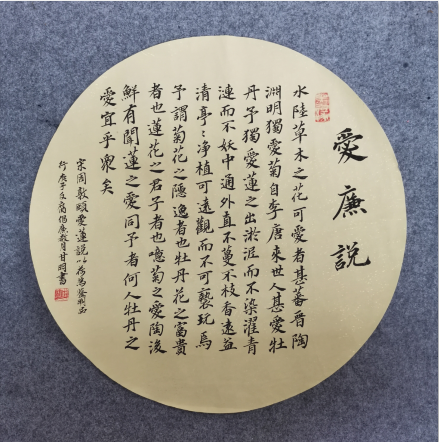 愛廉說
水陸草木之花可愛者甚蕃晉陶
淵明獨愛菊自李唐來世人甚愛牡
丹予獨愛蓮之出淤泥而不染濯青
漣而不妖中通外直不蔓不枝香遠益
清亭〻净植可遠觀而不可褻玩焉
予謂菊花之隱逸者也牡丹花之富貴
者也蓮花之君子者也噫菊之愛陶後
鮮有聞蓮之愛同予者何人牡丹之
愛宜乎眾矣
宋周敦頤愛蓮說以荷
行庚子